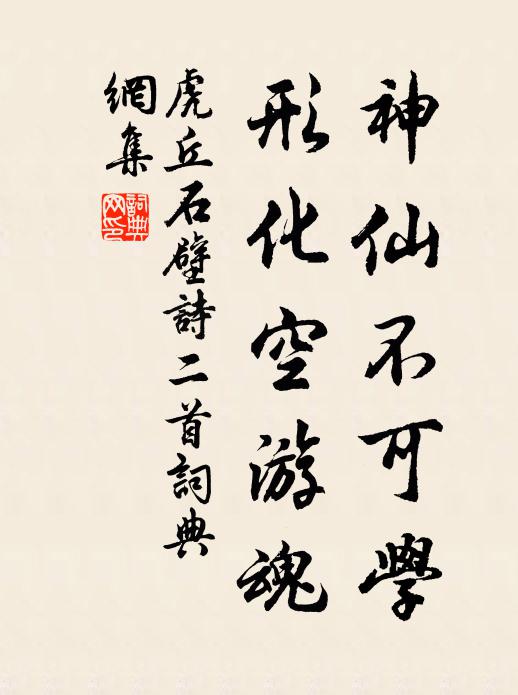 神仙不可學
形化空游魂
虎丘石壁詩二首詞典
網集
詞典
网印